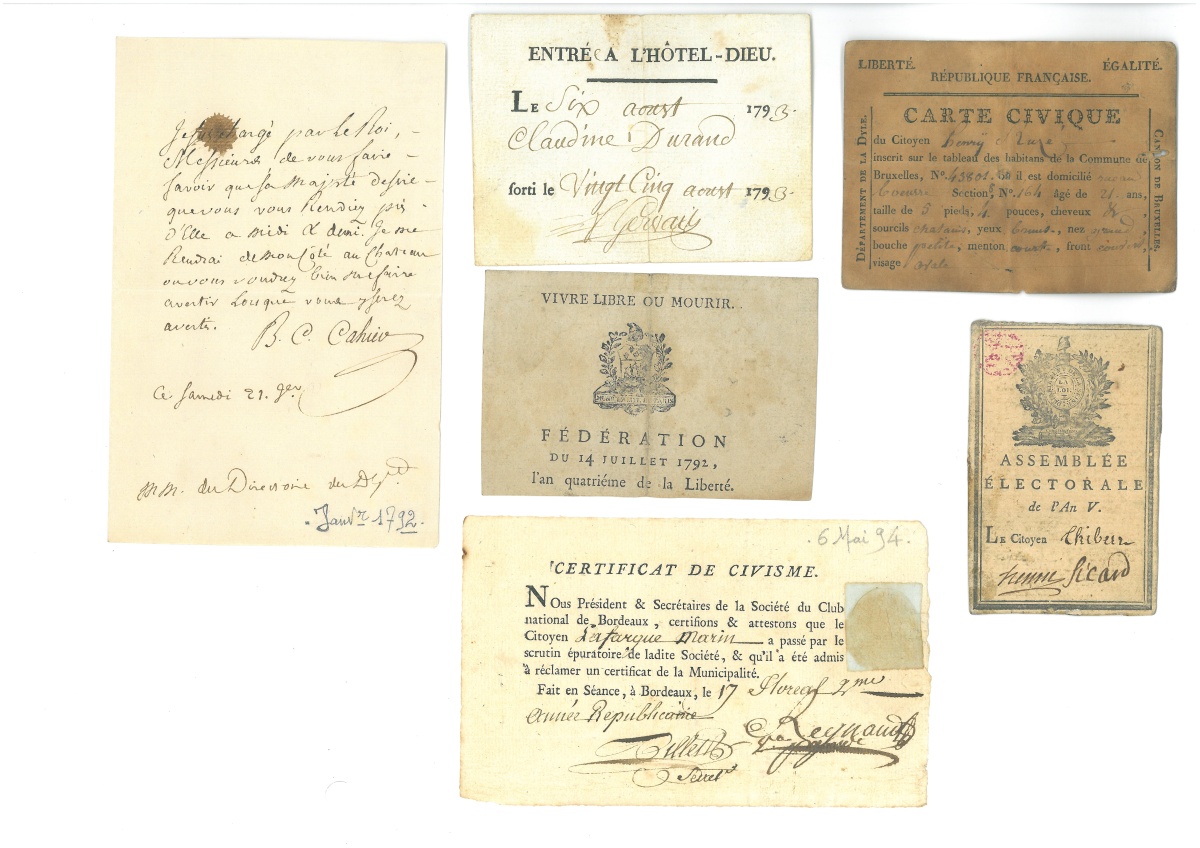 Je suis chargé par le Roi,
Messieurs de vous faire
savoir que sa Majesté desire
que vous vous Rendiez près
d'Elle a midi & demi. Je me
Rendrai de mon Côté au Chateau
ou vous voudrez bien me faire
avertir Lorsque vous y serez
B. C. Cahier
Ce Samedi 21. Jer
MM. du Directoire du Dept
Janvr 1792.
ENTRÉe A L'HÔTEL-DIEU.
LE Six aoust 1793.
Claudine Durand
sorti le Vingt Cinq aoust 1793.
Gervais
VIVRE LIBRE OU MOURIR.
FÉDÉRATION
DU 14 JUILLET 1792,
l'an quatriéme de la Liberté.
6 Mai 94.
CERTIFICAT DE CIVISME.
NOus Président & Secrétaires de la Société du Club
national de Bordeaux, certifions & attestons que le
Citoyen Lafargue Marin a passé par le
scrutin épuratoire de ladite Société, & qu'il a été admis
à réclamer un certificat de la Municipalité.
Fait en Séance, à Bordeaux, le 17 Floreal 2me
année Republicaine
Reynaud
LIBERTÉ. ÉGALITÉ.
RÉPUBLIQUE FRANÇAISE.
CARTE CIVIQUE
DÉPARTEMENT DE LA DYLE.
du Citoyen henry
inscrit sur le tableau des habitans de la Commune de
Bruxelles, N°. 43801. où il est domicilié
Section 8 N°. 164 âgé de 21. ans,
taille de 5 pieds, 4 pouces, cheveux
sourcils chatains, yeux bruns, nez grand,
bouche petite, menton court, front
visage ovale
CANTON DE BRUXELLES.
LA LOI
ASSEMBLÉE
ÉLECTORALE
de l'An V.
LE Citoyen
Sicard